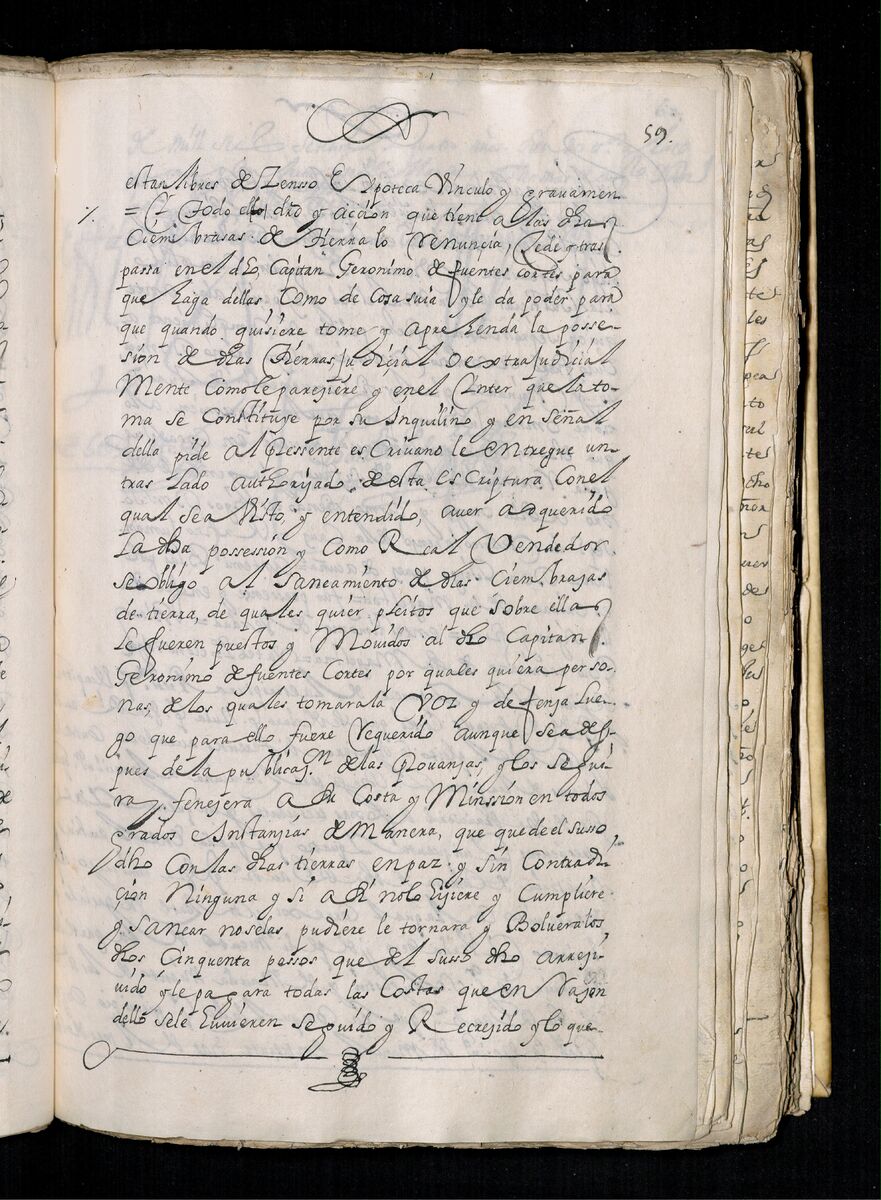 59.
estan libres de Zensso Epoteca Vinculo y gravamen
= Y Todo el dro y acçion que tiene a las dhas
Cien brasas de tierra lo renunçia, Zede y tras
passa en el dho, Capitan Geronimo de fuentes cortes para
que haga dellas Como de Cosa suia y le da poder para
que quando quisiere tome y aprehenda la posse-
sion de dhas tierras Judiçial o extra Judicial
Mente Como le parejiere y en el Ynter que la to-
ma se Constituye por su Inquilino y en señal
della pide al Pressente esCrivano le entregue un
tras lado authorijado de esta EsCriptura Con el
qual sea visto, y entendido, aver adquerido
La dha possession y Como Real Vendedor
se obligo al saneamiento de dhas Cien brajas
de tierra, de quales quier pleitos que sobre ellas
Le fueren puestos y Movidos al dho Capitan
Geronimo de fuentes Cortes por quales quiera perso-
nas, de los quales tomara la voz y defenja Lue-
go que para ello fuere requerido aunque sea des-
pues de la publicaj.on de las Provanjas, y los segui-
ra y fenejera a su Costa y Minssion en todos
grados e Instanjias de Manera, que quede el susso
dho Con las dhas tierras en paz y sin Contradi-
çion Ninguna y si assi no lo hijiere y Cumpliere
y sanear noselas pudiere le tornara y Bolvera los
dhos Cinquenta pessos que del susso dho a rreji-
uido y le pagara todas las Costas que en rajon
dello sele huvieren seguido y Recrejido y lo que-